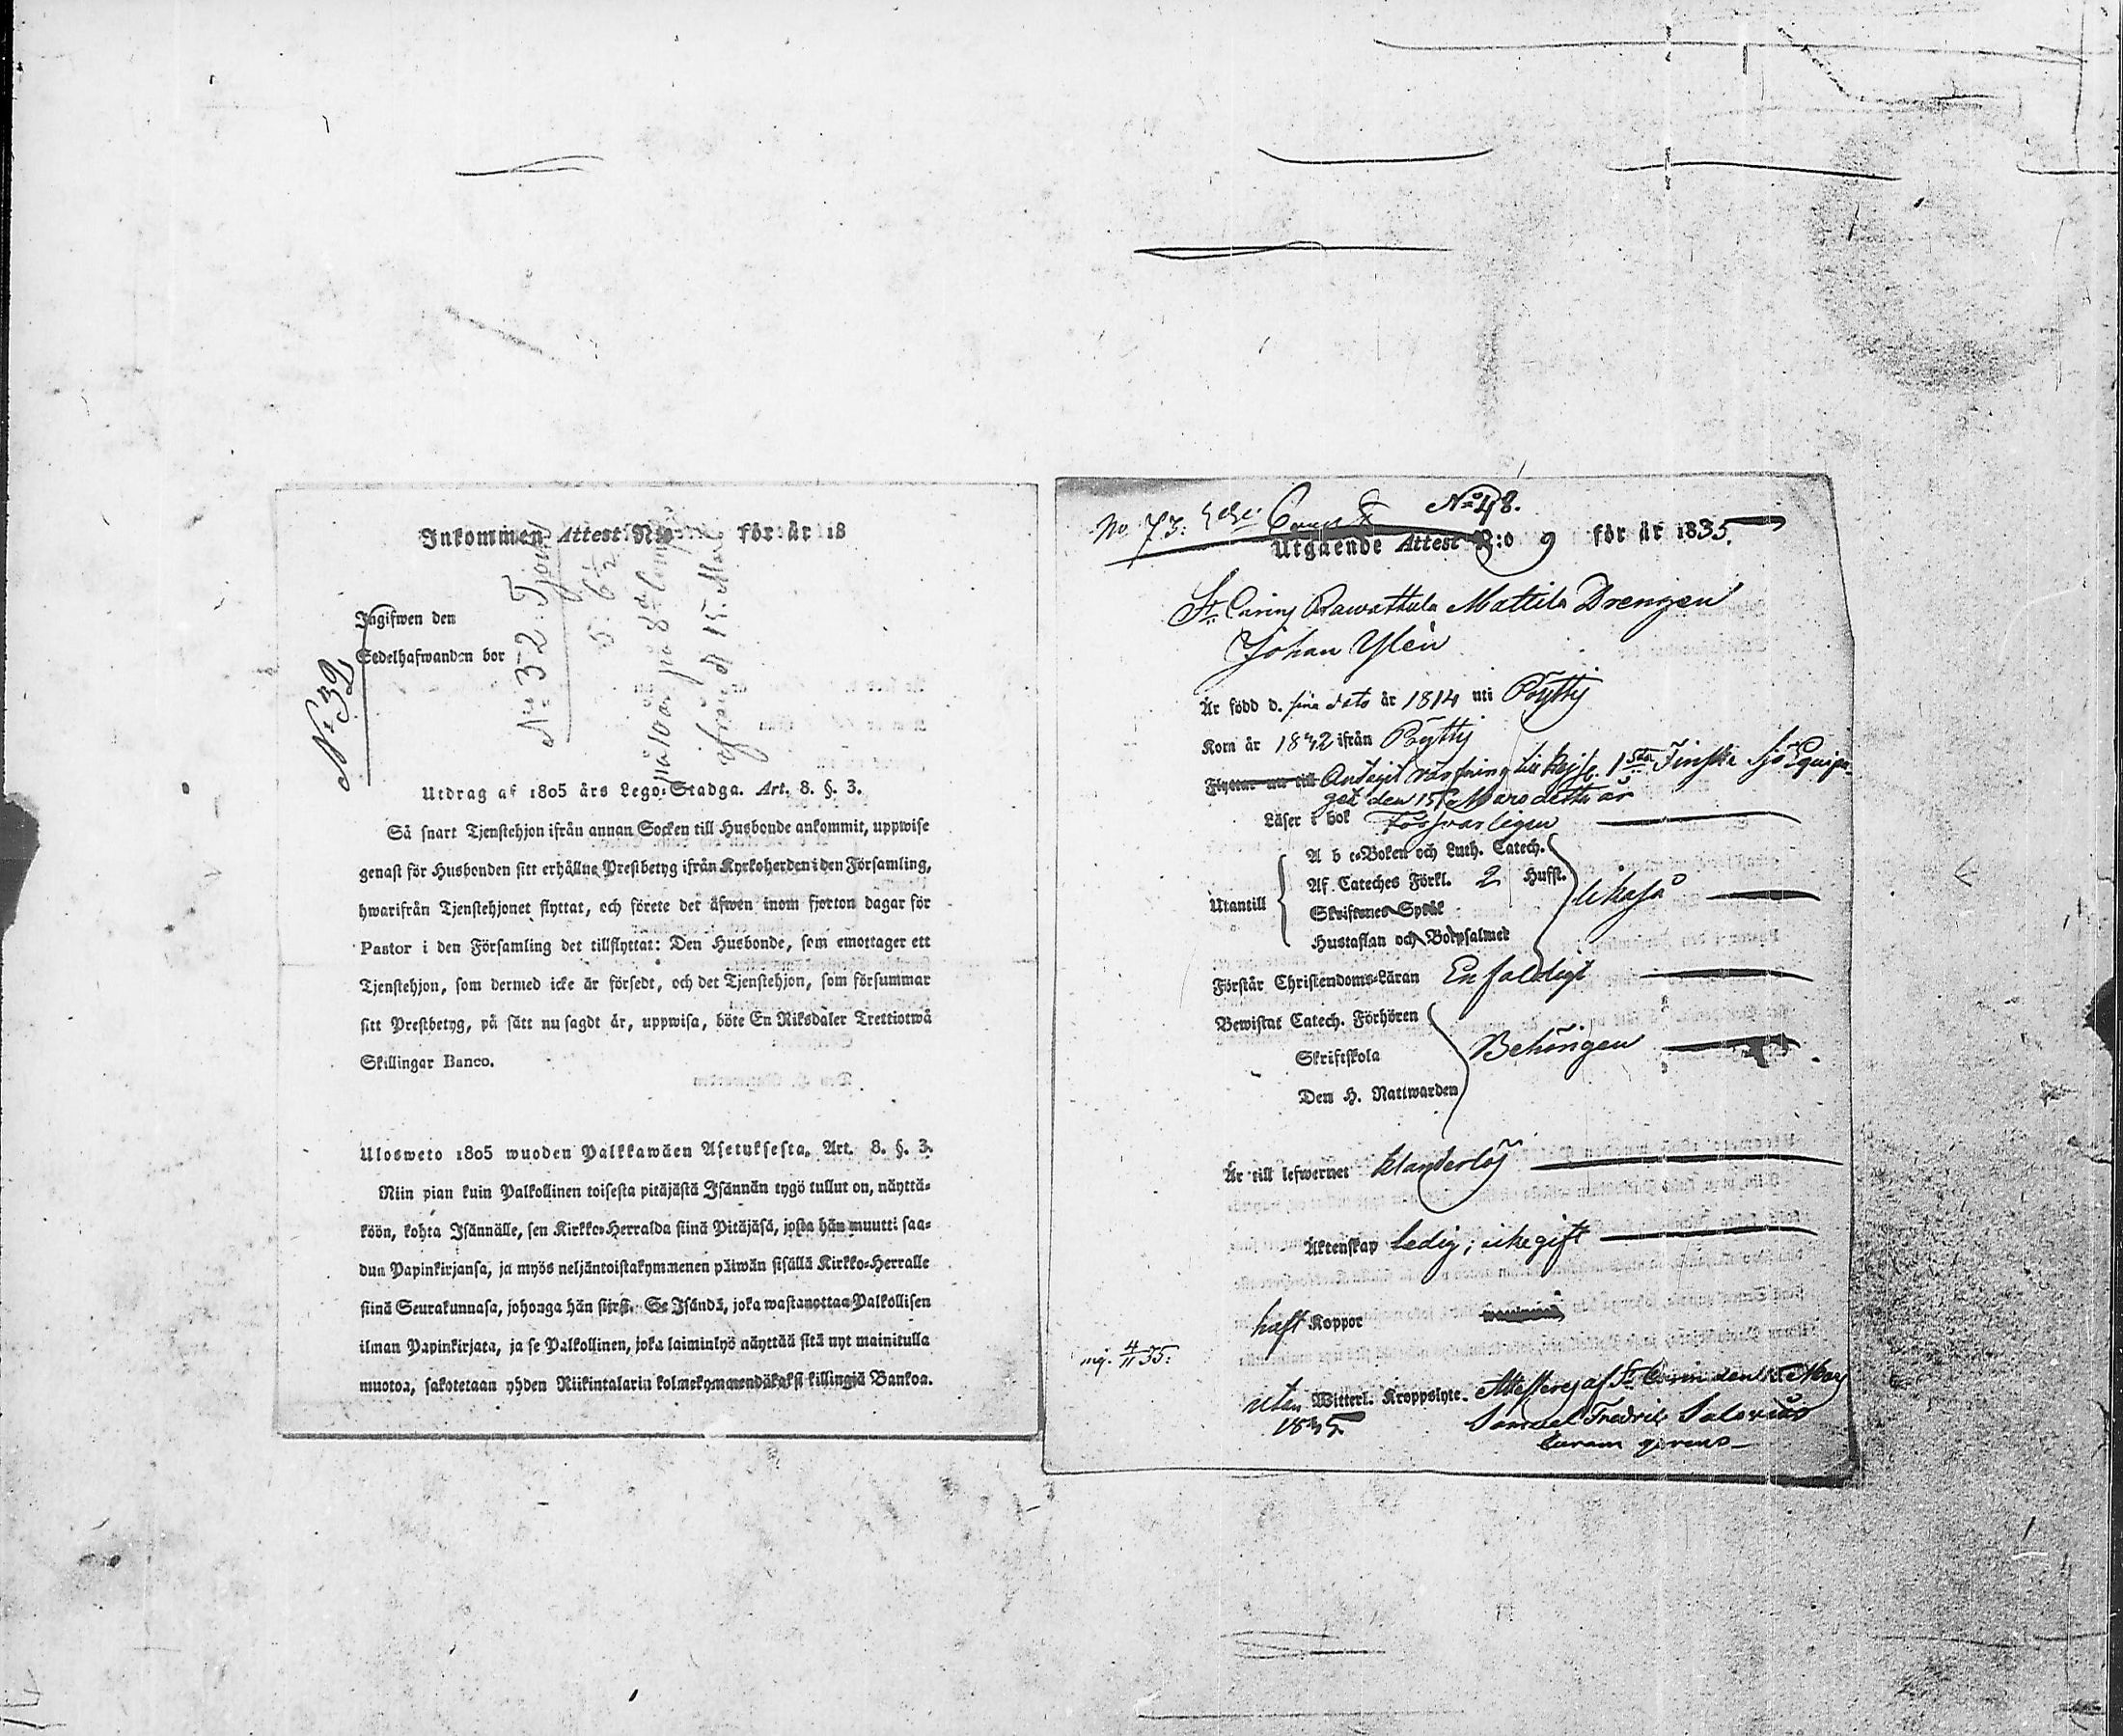 Inkommen Attest N:o för år 18
Ingifwen den
Sedelhafwanden bor
N:o 32
N:o 32. 5
5: 6½
på 10 år på 8
ifrån d 15. Mars
Utdrag af 1805 års Lego-Stadga. Art. 8. §. 3.
Så snart Tjenstehjon ifrån annan Socken till Husbonde ankommit, uppwise
genast för Husbonden sitt erhållne Prestbetyg ifrån Kyrkoherden i den Församling,
hwarifrån Tjenstehjonet flyttat, och förete det äfwen inom fjorton dagar för
Pastor i den Församling det tillflyttat: Den Husbonde, som emottager ett
Tjenstehjon, som dermed icke är försedt, och det Tjenstehjon, som försummar
sitt Prestbetyg, på sätt nu sagdt är, uppwisa, böte En Riksdaler Trettiotwå
Skillingar Banco.
Ulosweto 1805 wuoden Palkkawäen Asetuksesta. Art. 8. §. 3.
Niin pian kuin Palkollinen toisesta pitäjästä Isännän tygö tullut on, näyttä-
köön, kohta Isännälle, sen Kirkko-Herralda siinä Pitäjäsä, josta hän muutti saa-
dun Papinkirjansa, ja myös neljäntoistakymmenen päiwän sisällä Kirkko-Herralle
siinä Seurakunnasa, johonga hän siirst. Se Isändä, joka wastanottaa Palkollisen
ilman Papinkirjata, ja se Palkollinen, joka laiminlyö näyttää sitä nyt mainitulla
muotoa, sakotetaan yhden Riikintalarin kolmekymmendäkaksi killingiä Bankoa.
No 73: N:o 48.
Utgående Attest N:o 9 för år 1835.
St. Carins Rawattula Mattila Drengen
Johan Ylén
Är född d. sine dato år 1814 uti Pöytty
Kom år 1832 ifrån Pöytty
Flyttar nu till Antagit värfning till Kejs. 1sta Finska Sjö Equipa-
get den 15 Mars detta år
Läser i bok Försvarligen
Utantill
A b c-Boken och Luth. Catech.
Af Cateches Förkl. 2 Hufst. likaså
Skriftenes Språk
Hustaflan och Botpsalmer
Förstår Christendoms-Läran Enfaldigt
Bewistat Catech. Förhören
Skriftskola Behörigen
Den H. Nattwarden
Är till lefwernet klanderlös
Äktenskap ledig; icke gift
haft Koppor
4/11 35:
utan Witterl. Kroppslyte. Attesteras af St. Carin den 15 Mars
1835. Samuel Fredric Salovius
Curam gerens